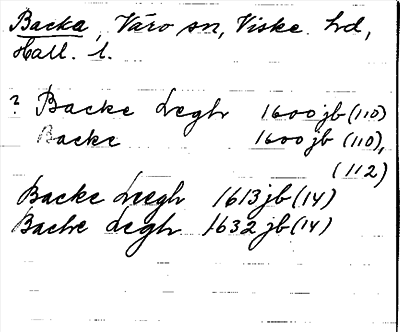 Backa, Värö sn, Viske hd,
Hall. l.
? Backe Legh 1600 jb (110)
Backe 1600 jb (110),
(112)
Backe Leegh 1613 jb (14)
Backe Legh 1632 jb (14)